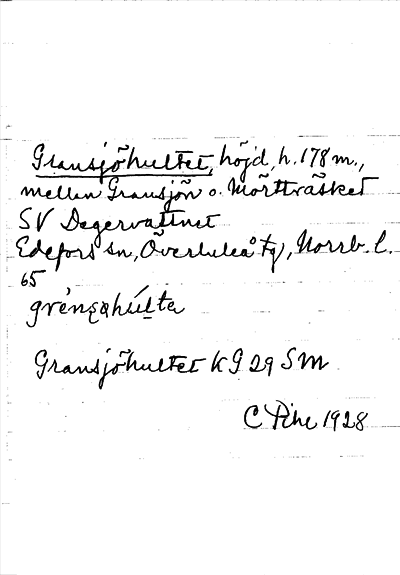 Gransjöhultet, höjd, h. 178 m.,
mellan Gransjön o. Mörtträsket
SV Degervattnet
Edefors sn, Överluleå tg), Norrb. l.
65
Gransjöhultet KG 29 SM
C Pihl 1928